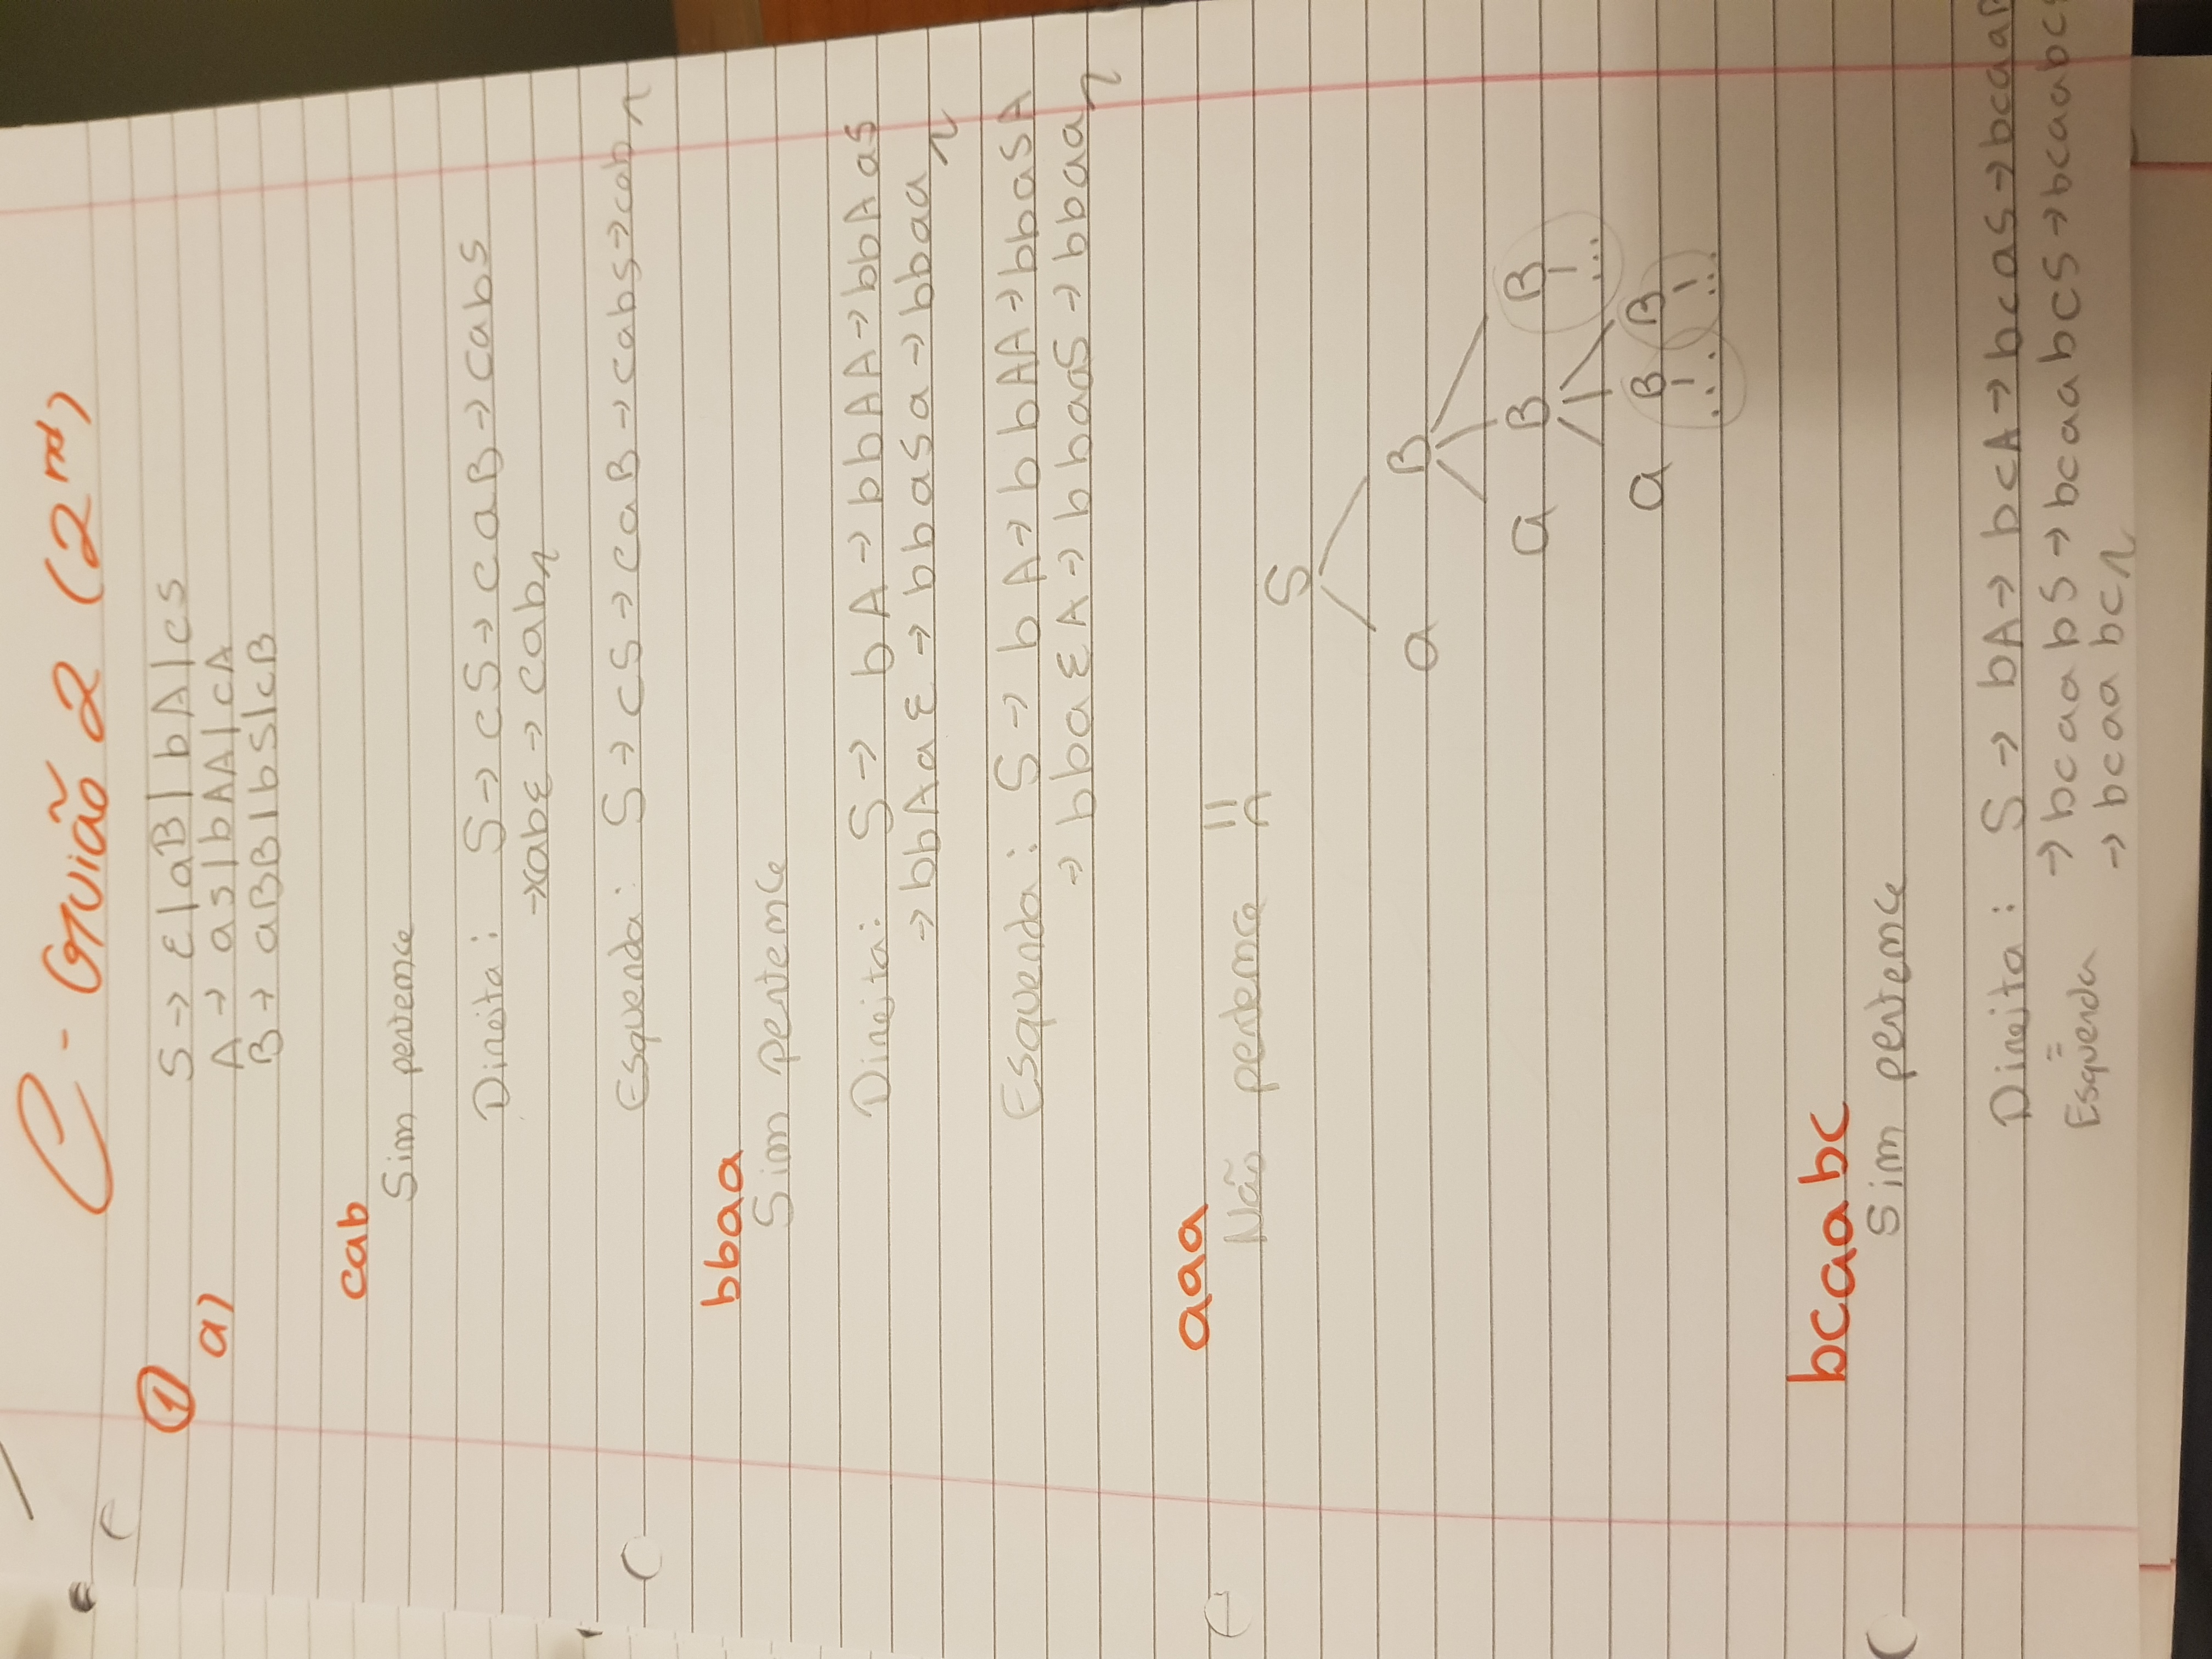 C - Guião 2 (2nd)
①
a)
S → ε | aB | bA | cS
A → aS | bAA | cA
B → aBB | bS | cB
cab
Sim pertence
Direita: S → cS → caB → cabS
→ cabε → cab
Esquerda: S → cS → caB → cabS → cab
bbaa
Sim pertence
Direita: S → bA → bbAA → bbAaS
→ bbAaε → bbaSa → bbaa
Esquerda: S → bA → bbAA → bbaSA
→ bbaεA → bbaaS → bbaa
aaa
Não pertence !!
S
a B
a B B
a B B ...
... ...
bcaabc
Sim pertence
Direita: S → bA → bcA → bcaS → bcaaB
=
Esquerda → bcaabS → bcaabcS → bcaabc
→ bcaabc